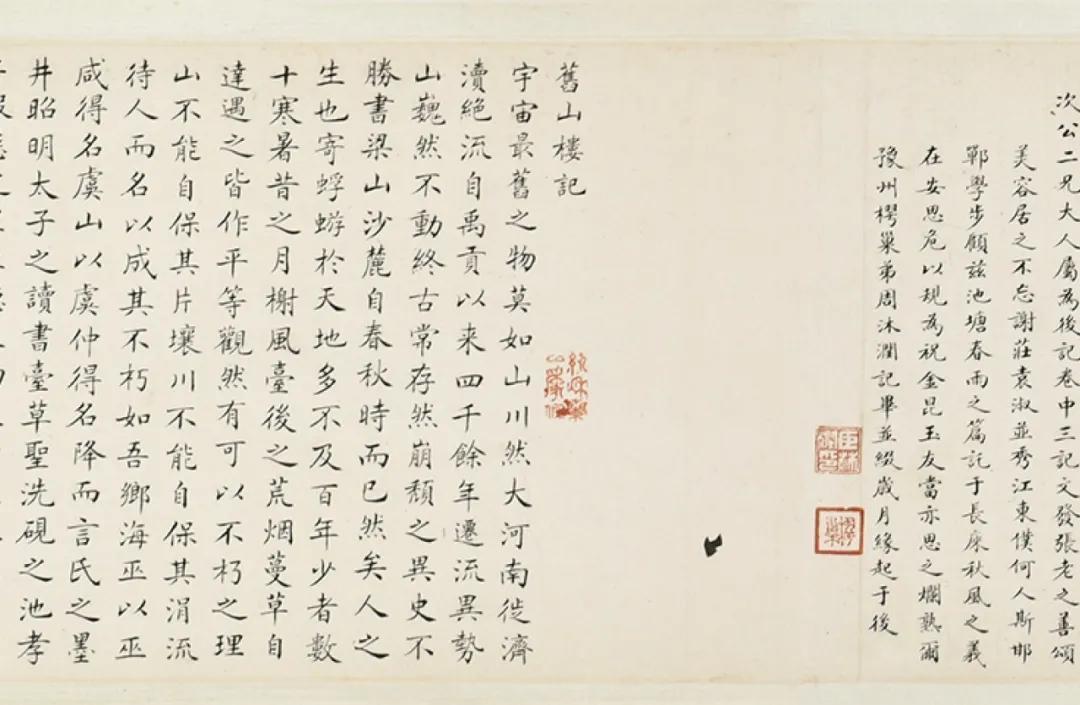 次公二兄大人屬為後記卷中三記文發張老之善頌
美容居之不忘謝莊袁淑並秀江東僕何人斯邯
鄲學步顧茲池塘春雨之篇託于長康秋風之義
在安思危以規為祝金昆玉友當亦思之爛熟爾
豫州樛巢弟周沐潤記畢並綴歲月緣起于後
舊山樓記
宇宙最舊之物莫如山川然大河南徙濟
瀆絕流自禹貢以来四千餘年遷流異勢
山巍然不動終古常存然崩頹之異史不
勝書梁山沙麓自春秋時而已然矣人之
生也寄蜉蝣於天地多不及百年少者數
十寒暑昔之月榭風臺後之荒烟蔓草自
達遇之皆作平等觀然有可以不朽之理
山不能自保其片壤川不能自保其涓流
待人而名以成其不朽如吾鄉海巫以巫
咸得名虞山以虞仲得名降而言氏之墨
井昭明太子之讀書臺草聖洗硯之池孝